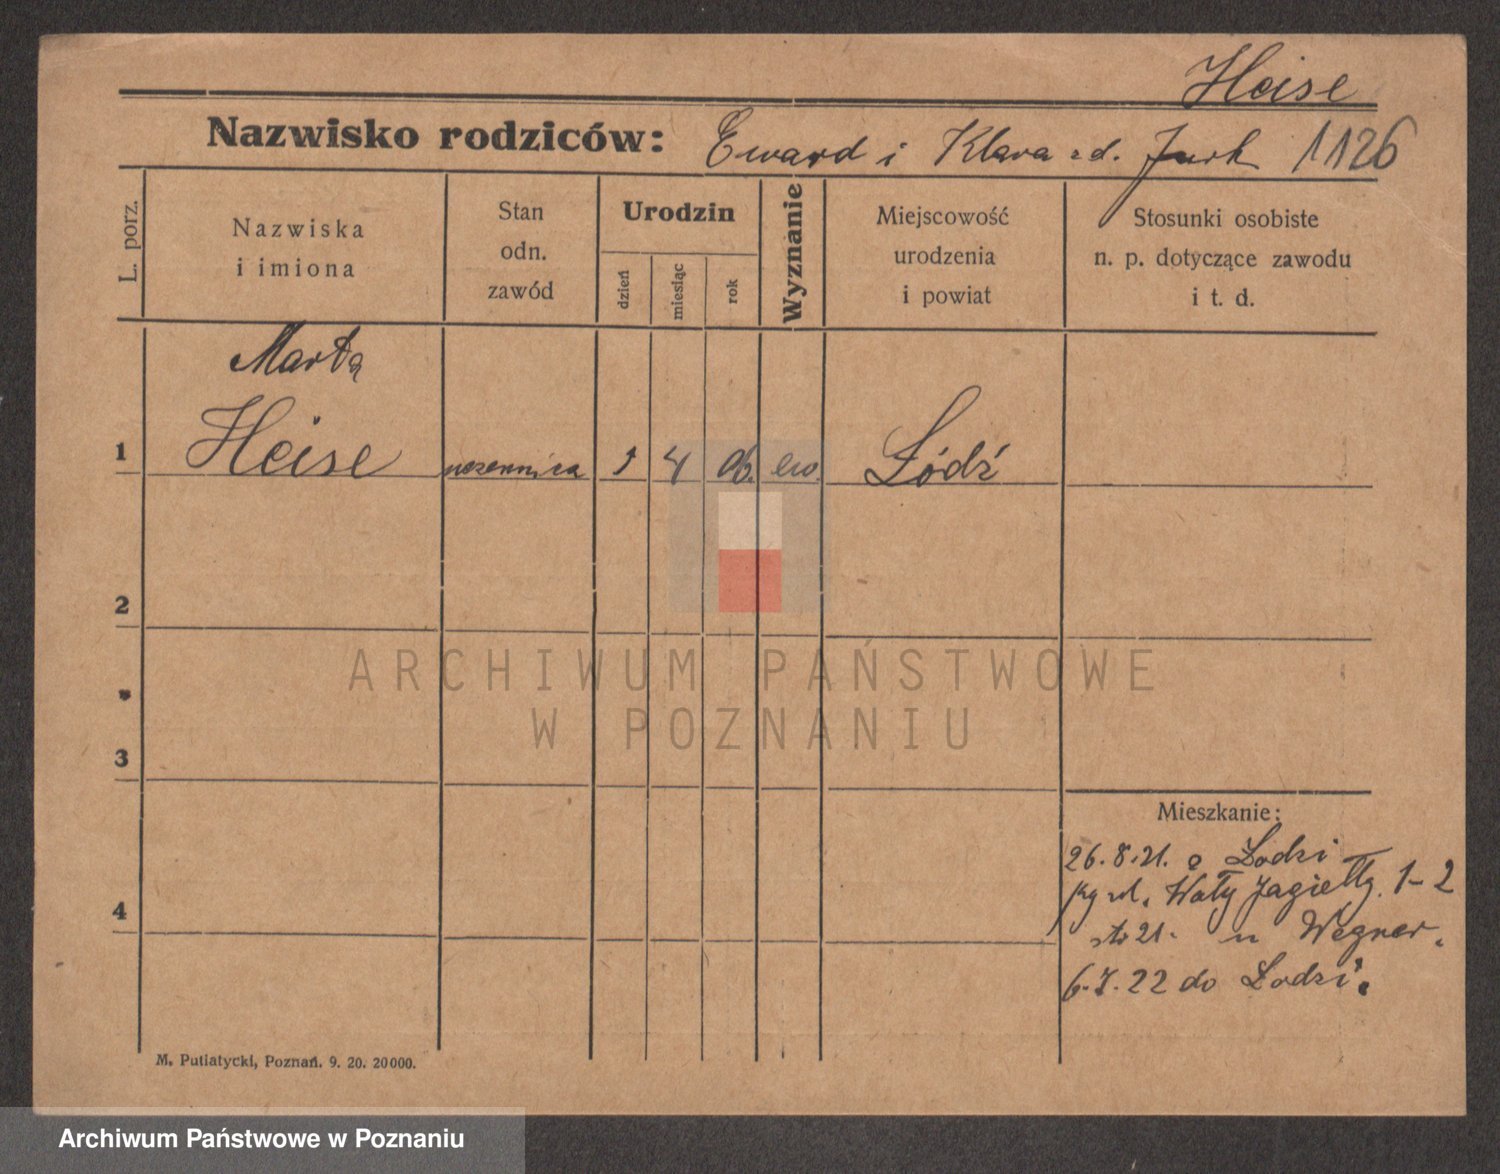 Heise
Nazwisko rodziców: Eward i Klara zd. Jurk 1126
L. porz.
Nazwiska
i imiona
Stan
odn.
zawód
Urodzin
dzień
miesiąc
rok
Wyznanie
Miejscowość
urodzenia
i powiat
Stosunki osobiste
n. p. dotyczące zawodu
i t. d.
Marta
1 Heise uczennica 4 06. ew. Łódź
2
ARCHIWUM PAŃSTWOWE
W POZNANIU
3
Mieszkanie:
26.8.21. z Łodzi
Wały Jagiełły. 1-2
4
21. u Wegner.
22 do Łodzi.
M. Putiatycki, Poznań. 9. 20. 20000.
Archiwum Państwowe w Poznaniu